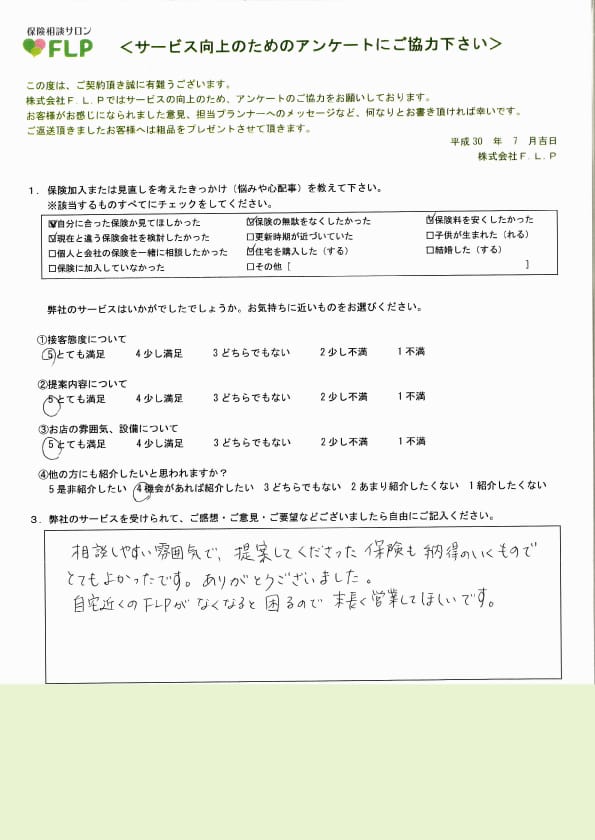 保険相談サロン
FLP
＜サービス向上のためのアンケートにご協力下さい＞
この度は、ご契約頂き誠に有難うございます。
株式会社Ｆ．Ｌ．Ｐではサービスの向上のため、アンケートのご協力をお願いしております。
お客様がお感じになられました意見、担当プランナーへのメッセージなど、何なりとお書き頂ければ幸いです。
ご返送頂きましたお客様へは粗品をプレゼントさせて頂きます。
平成30 年 7 月吉日
株式会社Ｆ．Ｌ．Ｐ
１．保険加入または見直しを考えたきっかけ（悩みや心配事）を教えて下さい。
※該当するものすべてにチェックをしてください。
☑自分に合った保険か見てほしかった ☑保険の無駄をなくしたかった ☑保険料を安くしたかった
☑現在と違う保険会社を検討したかった □更新時期が近づいていた □子供が生まれた（れる）
□個人と会社の保険を一緒に相談したかった ☑住宅を購入した（する） □結婚した（する）
□保険に加入していなかった □その他［ ］
弊社のサービスはいかがでしたでしょうか。お気持ちに近いものをお選びください。
①接客態度について
５とても満足 ４少し満足 ３どちらでもない ２少し不満 １不満
②提案内容について
５とても満足 ４少し満足 ３どちらでもない ２少し不満 １不満
③お店の雰囲気、設備について
５とても満足 ４少し満足 ３どちらでもない ２少し不満 １不満
④他の方にも紹介したいと思われますか？
５是非紹介したい ４機会があれば紹介したい ３どちらでもない ２あまり紹介したくない １紹介したくない
３．弊社のサービスを受けられて、ご感想・ご意見・ご要望などございましたら自由にご記入ください。
相談しやすい雰囲気で、提案してくださった保険も納得のいくもので
とてもよかったです。ありがとうございました。
自宅近くのFLPがなくなると困るので末長く営業してほしいです。